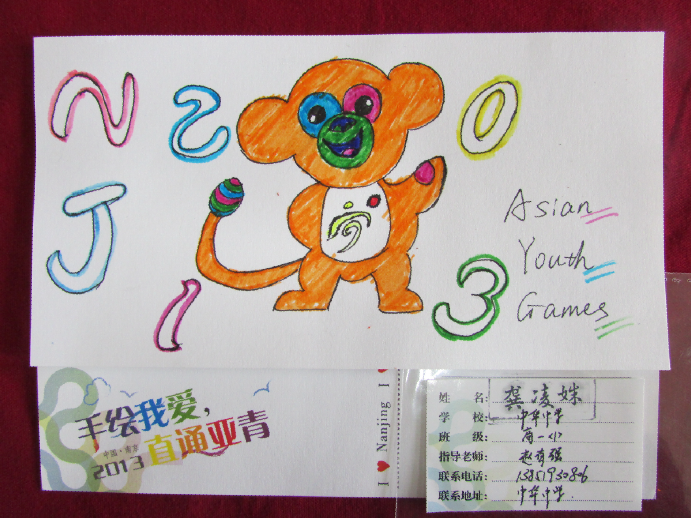 N 2 0
J 1 3
Asian
Youth
Games
手绘我爱,
中国·南京
直通亚青
2013
I ❤ Nanjing I
姓 名: 龚凌姝
学 校: 中华中学
班 级: 高一
指导老师:
联系电话:
联系地址: 中华中学